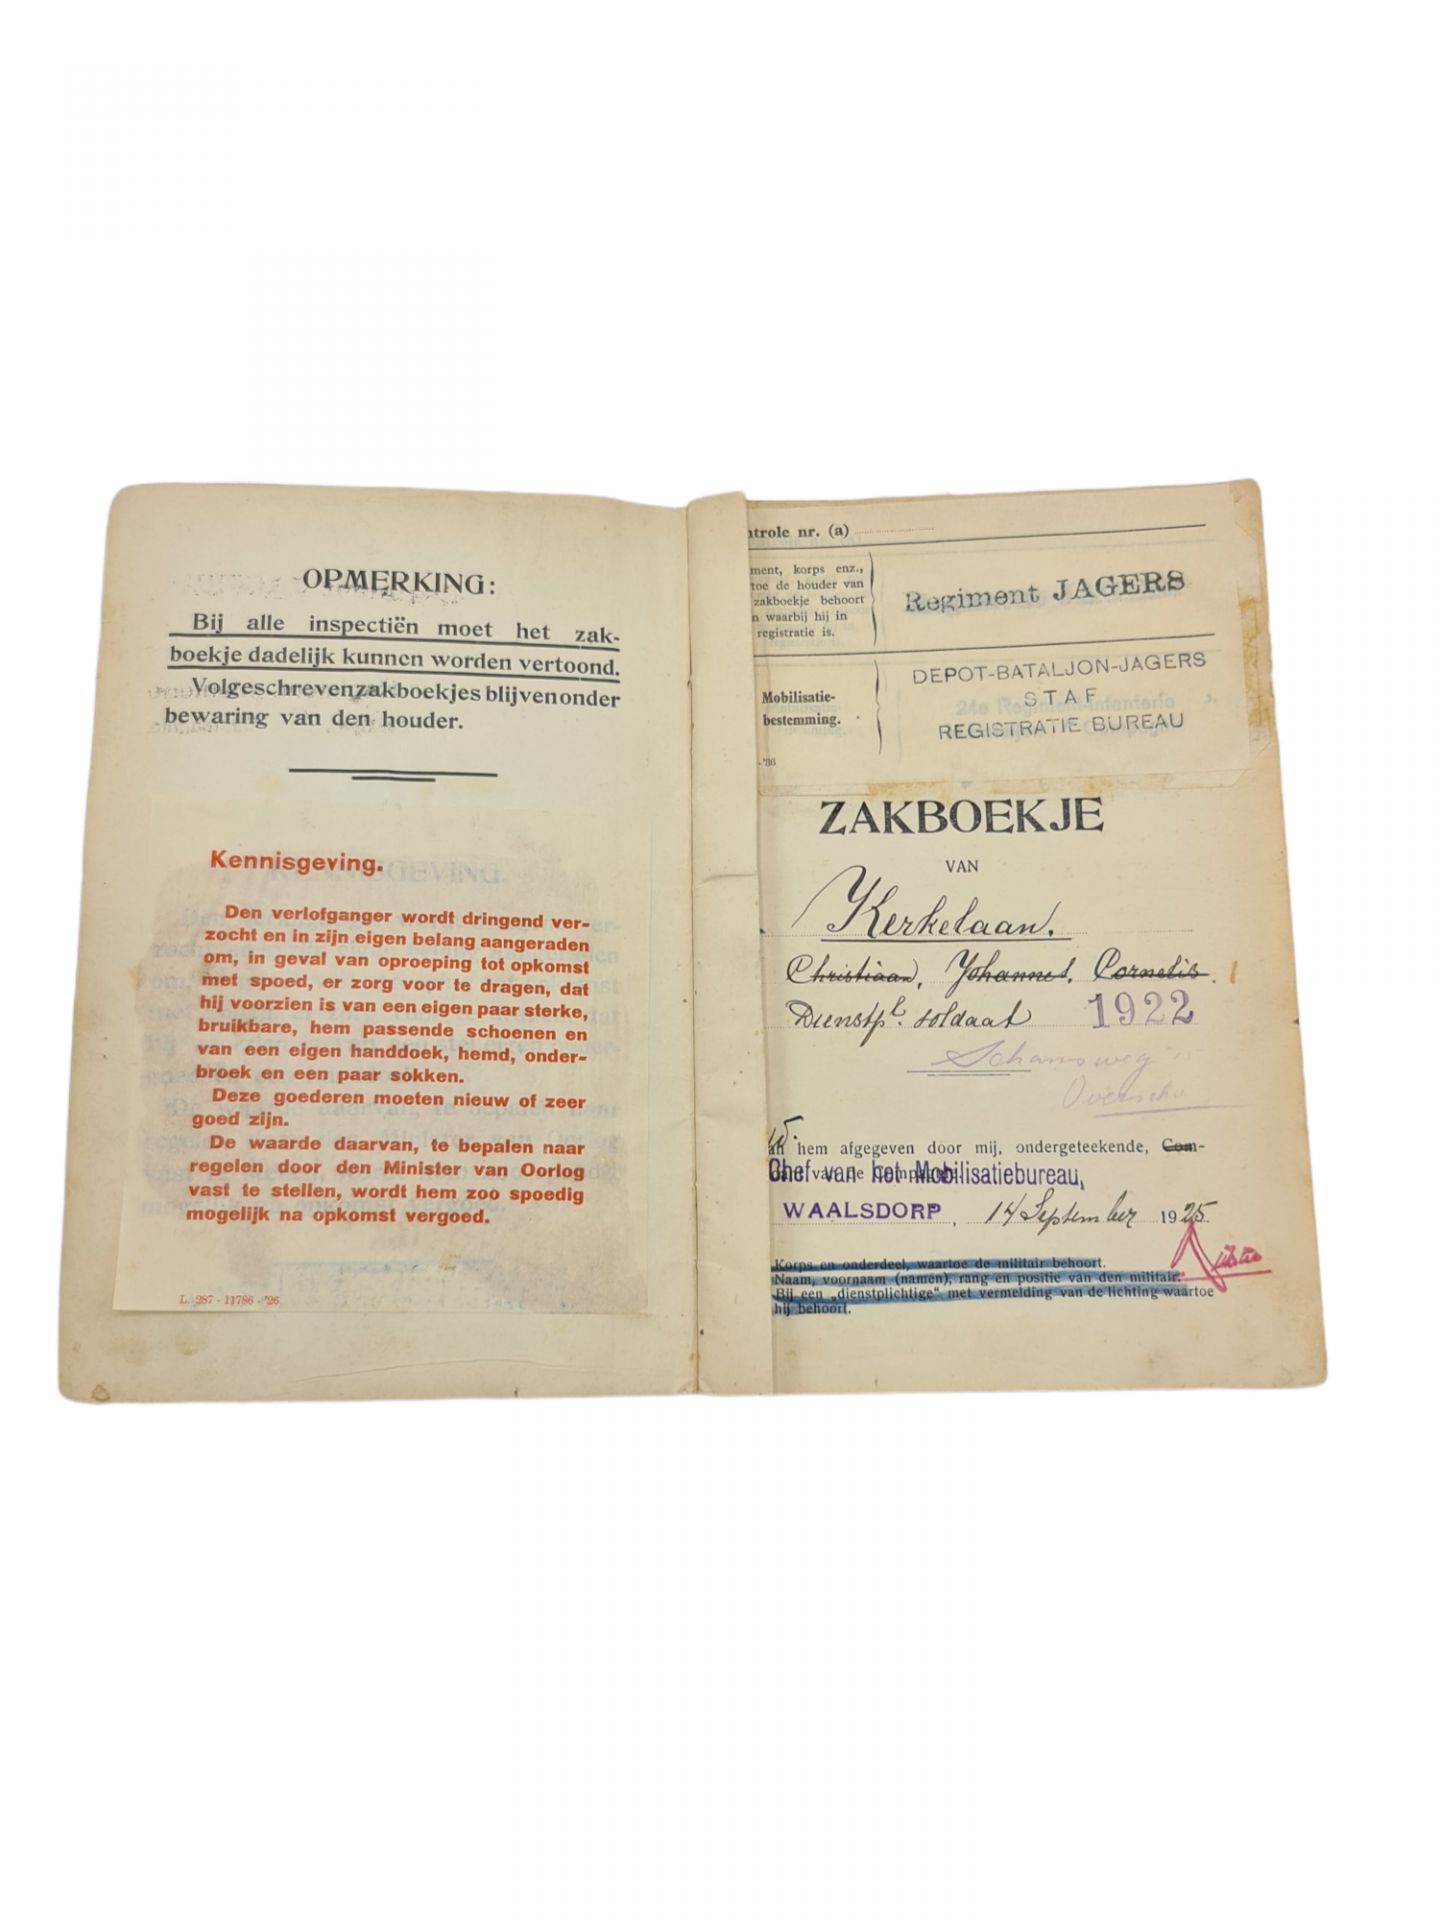 OPMERKING:
Bij alle inspectiën moet het zak-
boekje dadelijk kunnen worden vertoond.
Volgeschreven zakboekjes blijven onder
bewaring van den houder.
Kennisgeving.
Den verlofganger wordt dringend ver-
zocht en in zijn eigen belang aangeraden
om, in geval van oproeping tot opkomst
met spoed, er zorg voor te dragen, dat
hij voorzien is van een eigen paar sterke,
bruikbare, hem passende schoenen en
van een eigen handdoek, hemd, onder-
broek en een paar sokken.
Deze goederen moeten nieuw of zeer
goed zijn.
De waarde daarvan, te bepalen naar
regelen door den Minister van Oorlog
vast te stellen, wordt hem zoo spoedig
mogelijk na opkomst vergoed.
L. 287 - 11786 - '26
ntrole nr. (a)
ment, korps enz.,
toe de houder van
zakboekje behoort
n waarbij hij in
registratie is.
Regiment JAGERS
Mobilisatie-
bestemming.
DEPOT-BATALJON-JAGERS
STAF
REGISTRATIE BUREAU
-'36
ZAKBOEKJE
VAN
Kerkelaan.
Christiaan, Johannes, Cornelis.
Dienstpl. soldaat 1922
Schansweg
an hem afgegeven door mij, ondergeteekende, Com-
Chef van het Mobilisatiebureau,
WAALSDORP, 14 September 1925.
Korps en onderdeel, waartoe de militair behoort.
Naam, voornaam (namen), rang en positie van den militair.
Bij een „dienstplichtige" met vermelding van de lichting waartoe
hij behoort.